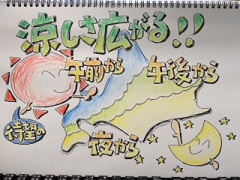 涼しさ広がる!!
午前から
午後から
待望の
夜から